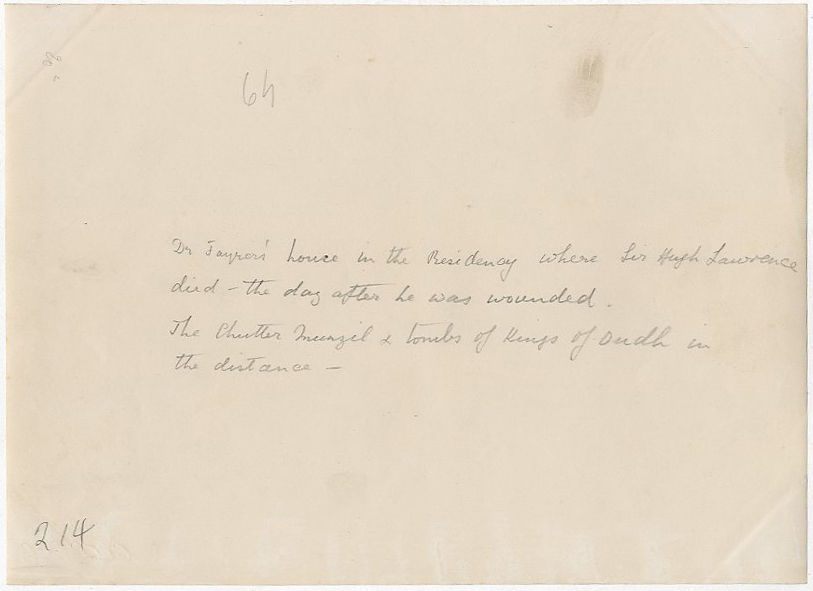 64
Dr Fayrer's house in the Residency where Sir Hugh Lawrence
died - the day after he was wounded.
The Chutter Munzil & tombs of Kings of Oudh in
the distance -
214